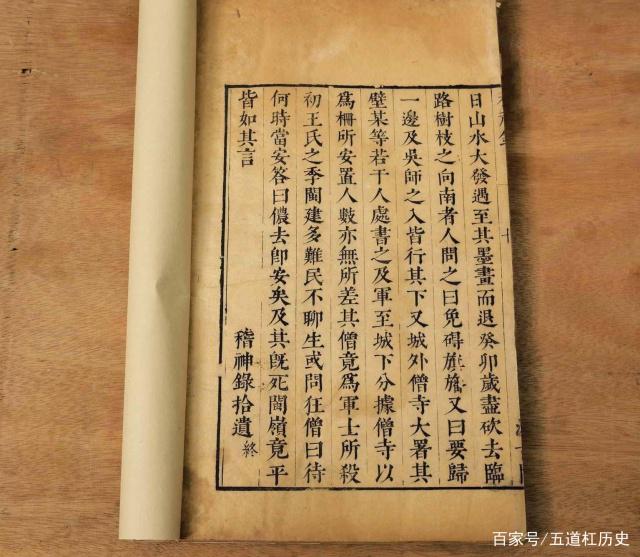 日山水大發遇至其墨畫而退癸卯歲盡砍去臨
路樹枝之向南者人問之曰免碍旌旛又曰要歸
一邊及吳師之入皆行其下又城外僧寺大署其
壁某等若干人處書之及軍至城下分據僧寺以
爲柵所安置人數亦無所差其僧竟爲軍士所殺
初王氏之季閩建多難民不聊生或問狂僧曰待
何時當安答曰儂去卽安矣及其旣死閩嶺竟平
皆如其言
稽神錄拾遺終
百家号/五道杠历史